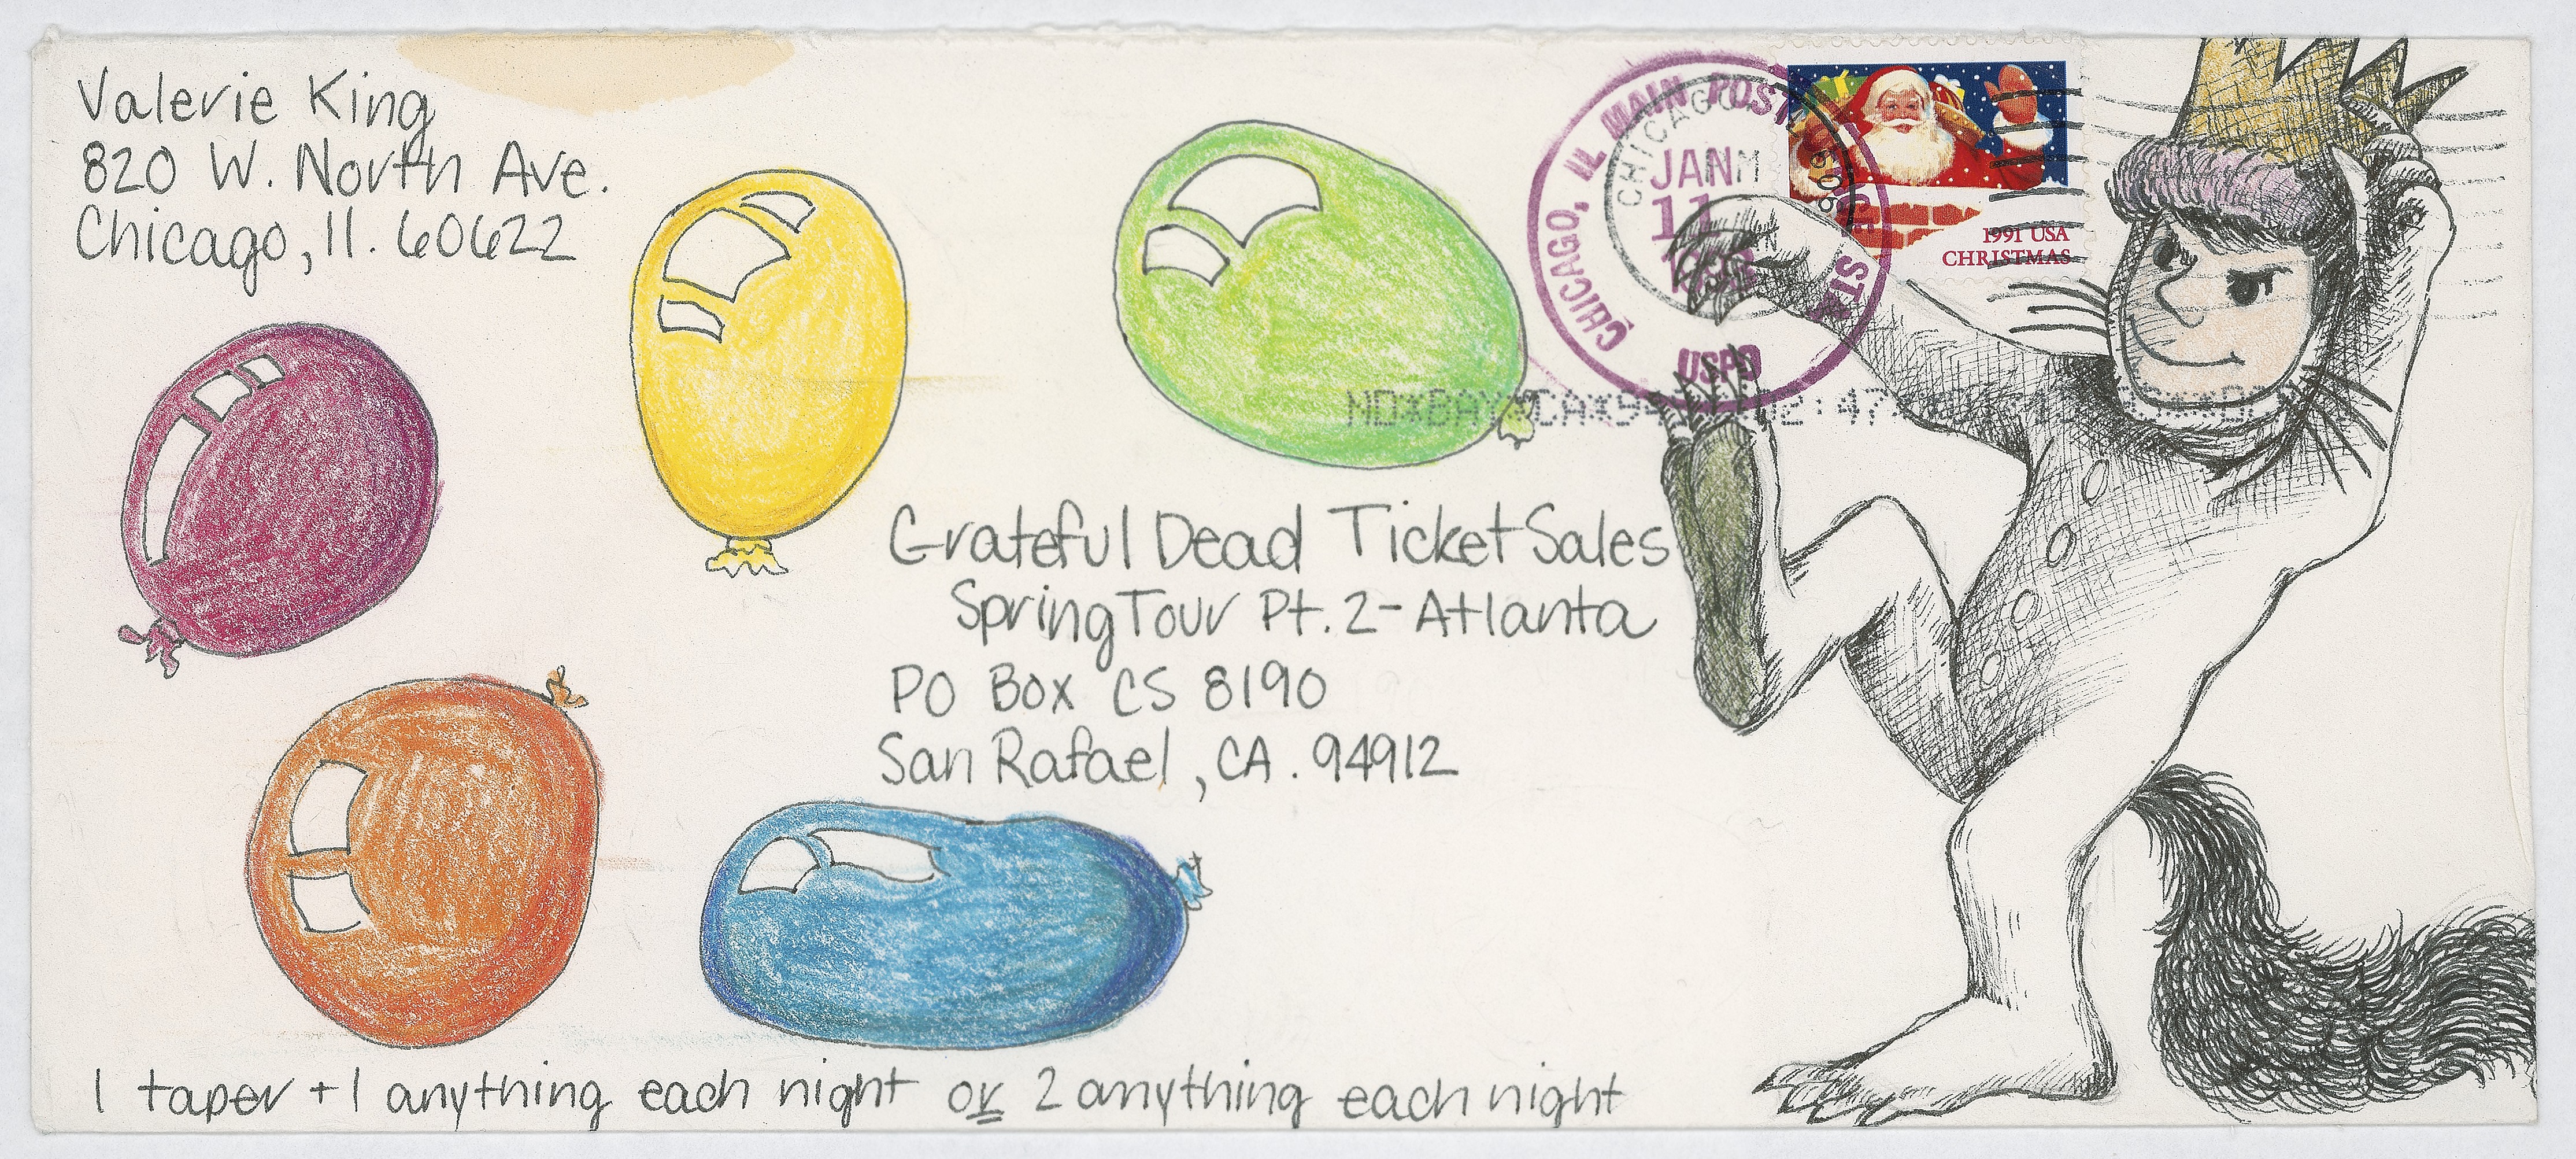 Valerie King
820 W. North Ave.
Chicago, Il. 60622
CHICAGO, IL MAIN POST OFFICE STA
USPO
JAN
11
CHICAGO
606
1991 USA
CHRISTMAS
Grateful Dead Ticket Sales
Spring Tour Pt. 2-Atlanta
PO Box CS 8190
San Rafael, CA. 94912
1 taper + 1 anything each night or 2 anything each night